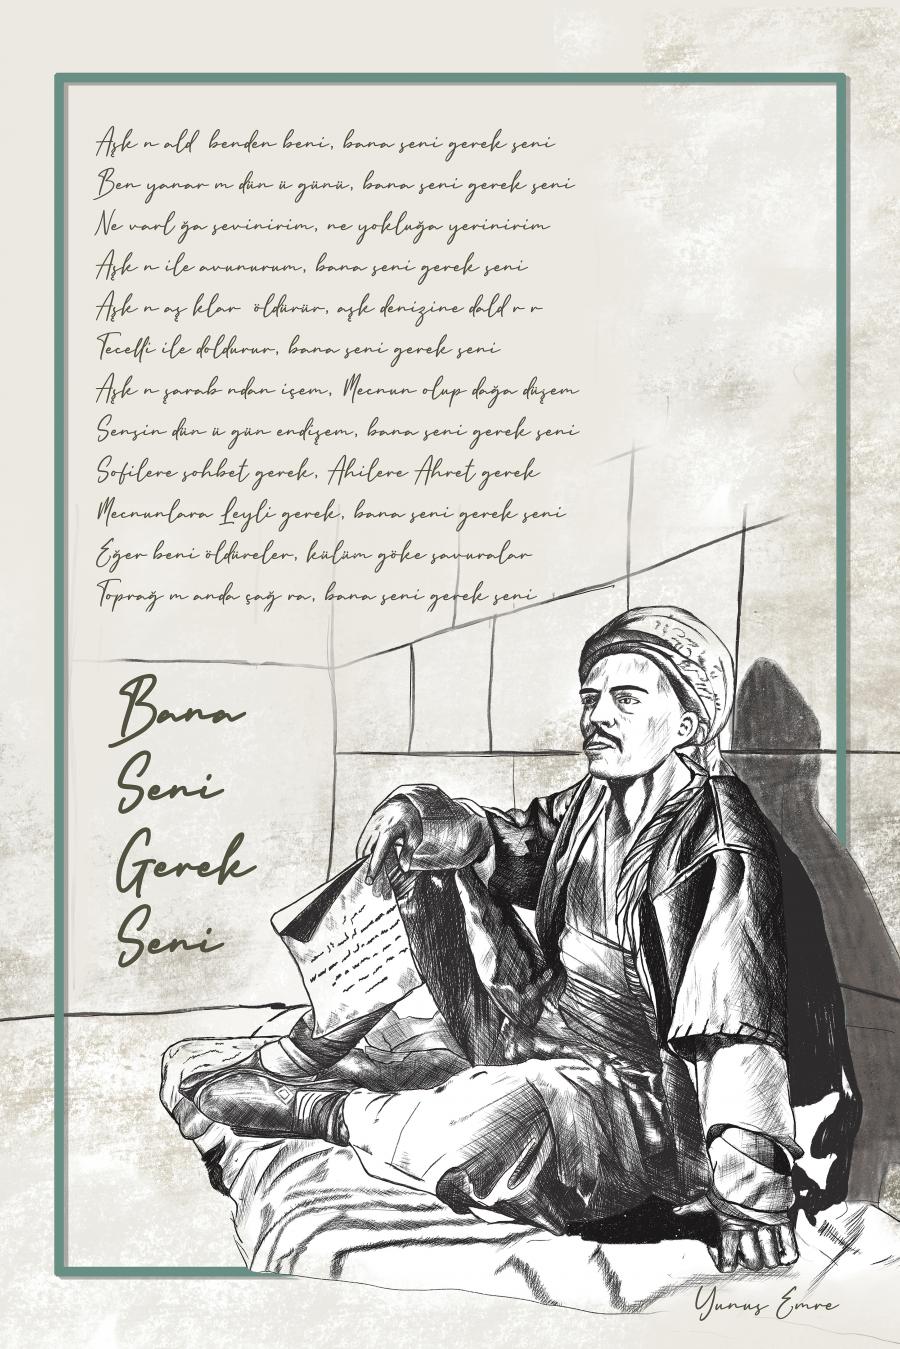 Aşk n ald  benden beni, bana seni gerek seni
Ben yanar m dün ü günü, bana seni gerek seni
Ne varl ğa sevinirim, ne yokluğa yerinirim
Aşk n ile avunurum, bana seni gerek seni
Aşk n aş klar  öldürür, aşk denizine dald r r
Tecelli ile doldurur, bana seni gerek seni
Aşk n şarab ndan içem, Mecnun olup dağa düşem
Sensin dün ü gün endişem, bana seni gerek seni
Sofilere sohbet gerek, Ahilere Ahret gerek
Mecnunlara Leyli gerek, bana seni gerek seni
Eğer beni öldüreler, külüm göke savuralar
Toprağ m anda çağ ra, bana seni gerek seni
Bana
Seni
Gerek
Seni
Yunus Emre